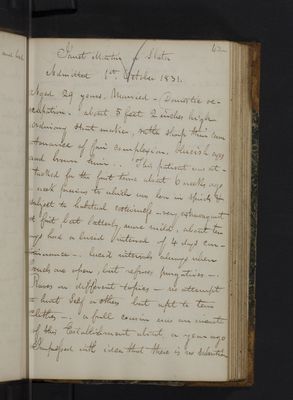 62
Admitted 1st October 1831.
Aged 29 years. Married - Domestic oc-
cupation. about 5 feet 2 inches high
ordinary stout make, rather sharp thin coun
tenance of fair complexion. blueish eyes
and brown hair.. This patient was at-
tacked for the first time about 6 months ago
week previous to which was low in spirits &
subject to habitual costiveness - very extravagant
at first, but latterly more mild, about ten
days had a lucid interval of 4 days con-
tinuance -. lucid intervals always when
bowels are open, but refuses purgatives -.
Raves on different topics - no attempt
to hurt self or others but apt to tear
clothes -. a full cousin was an inmate
of this Establishment about a year ago
Impressed with idea that there is no salvation